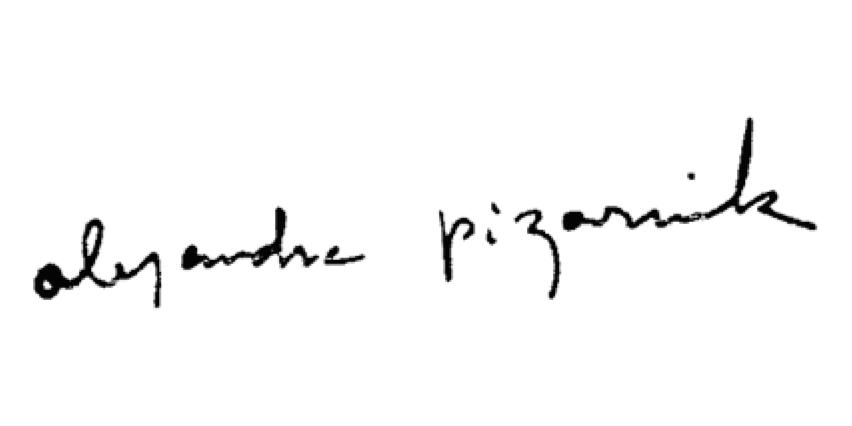 alejandra pizarnik